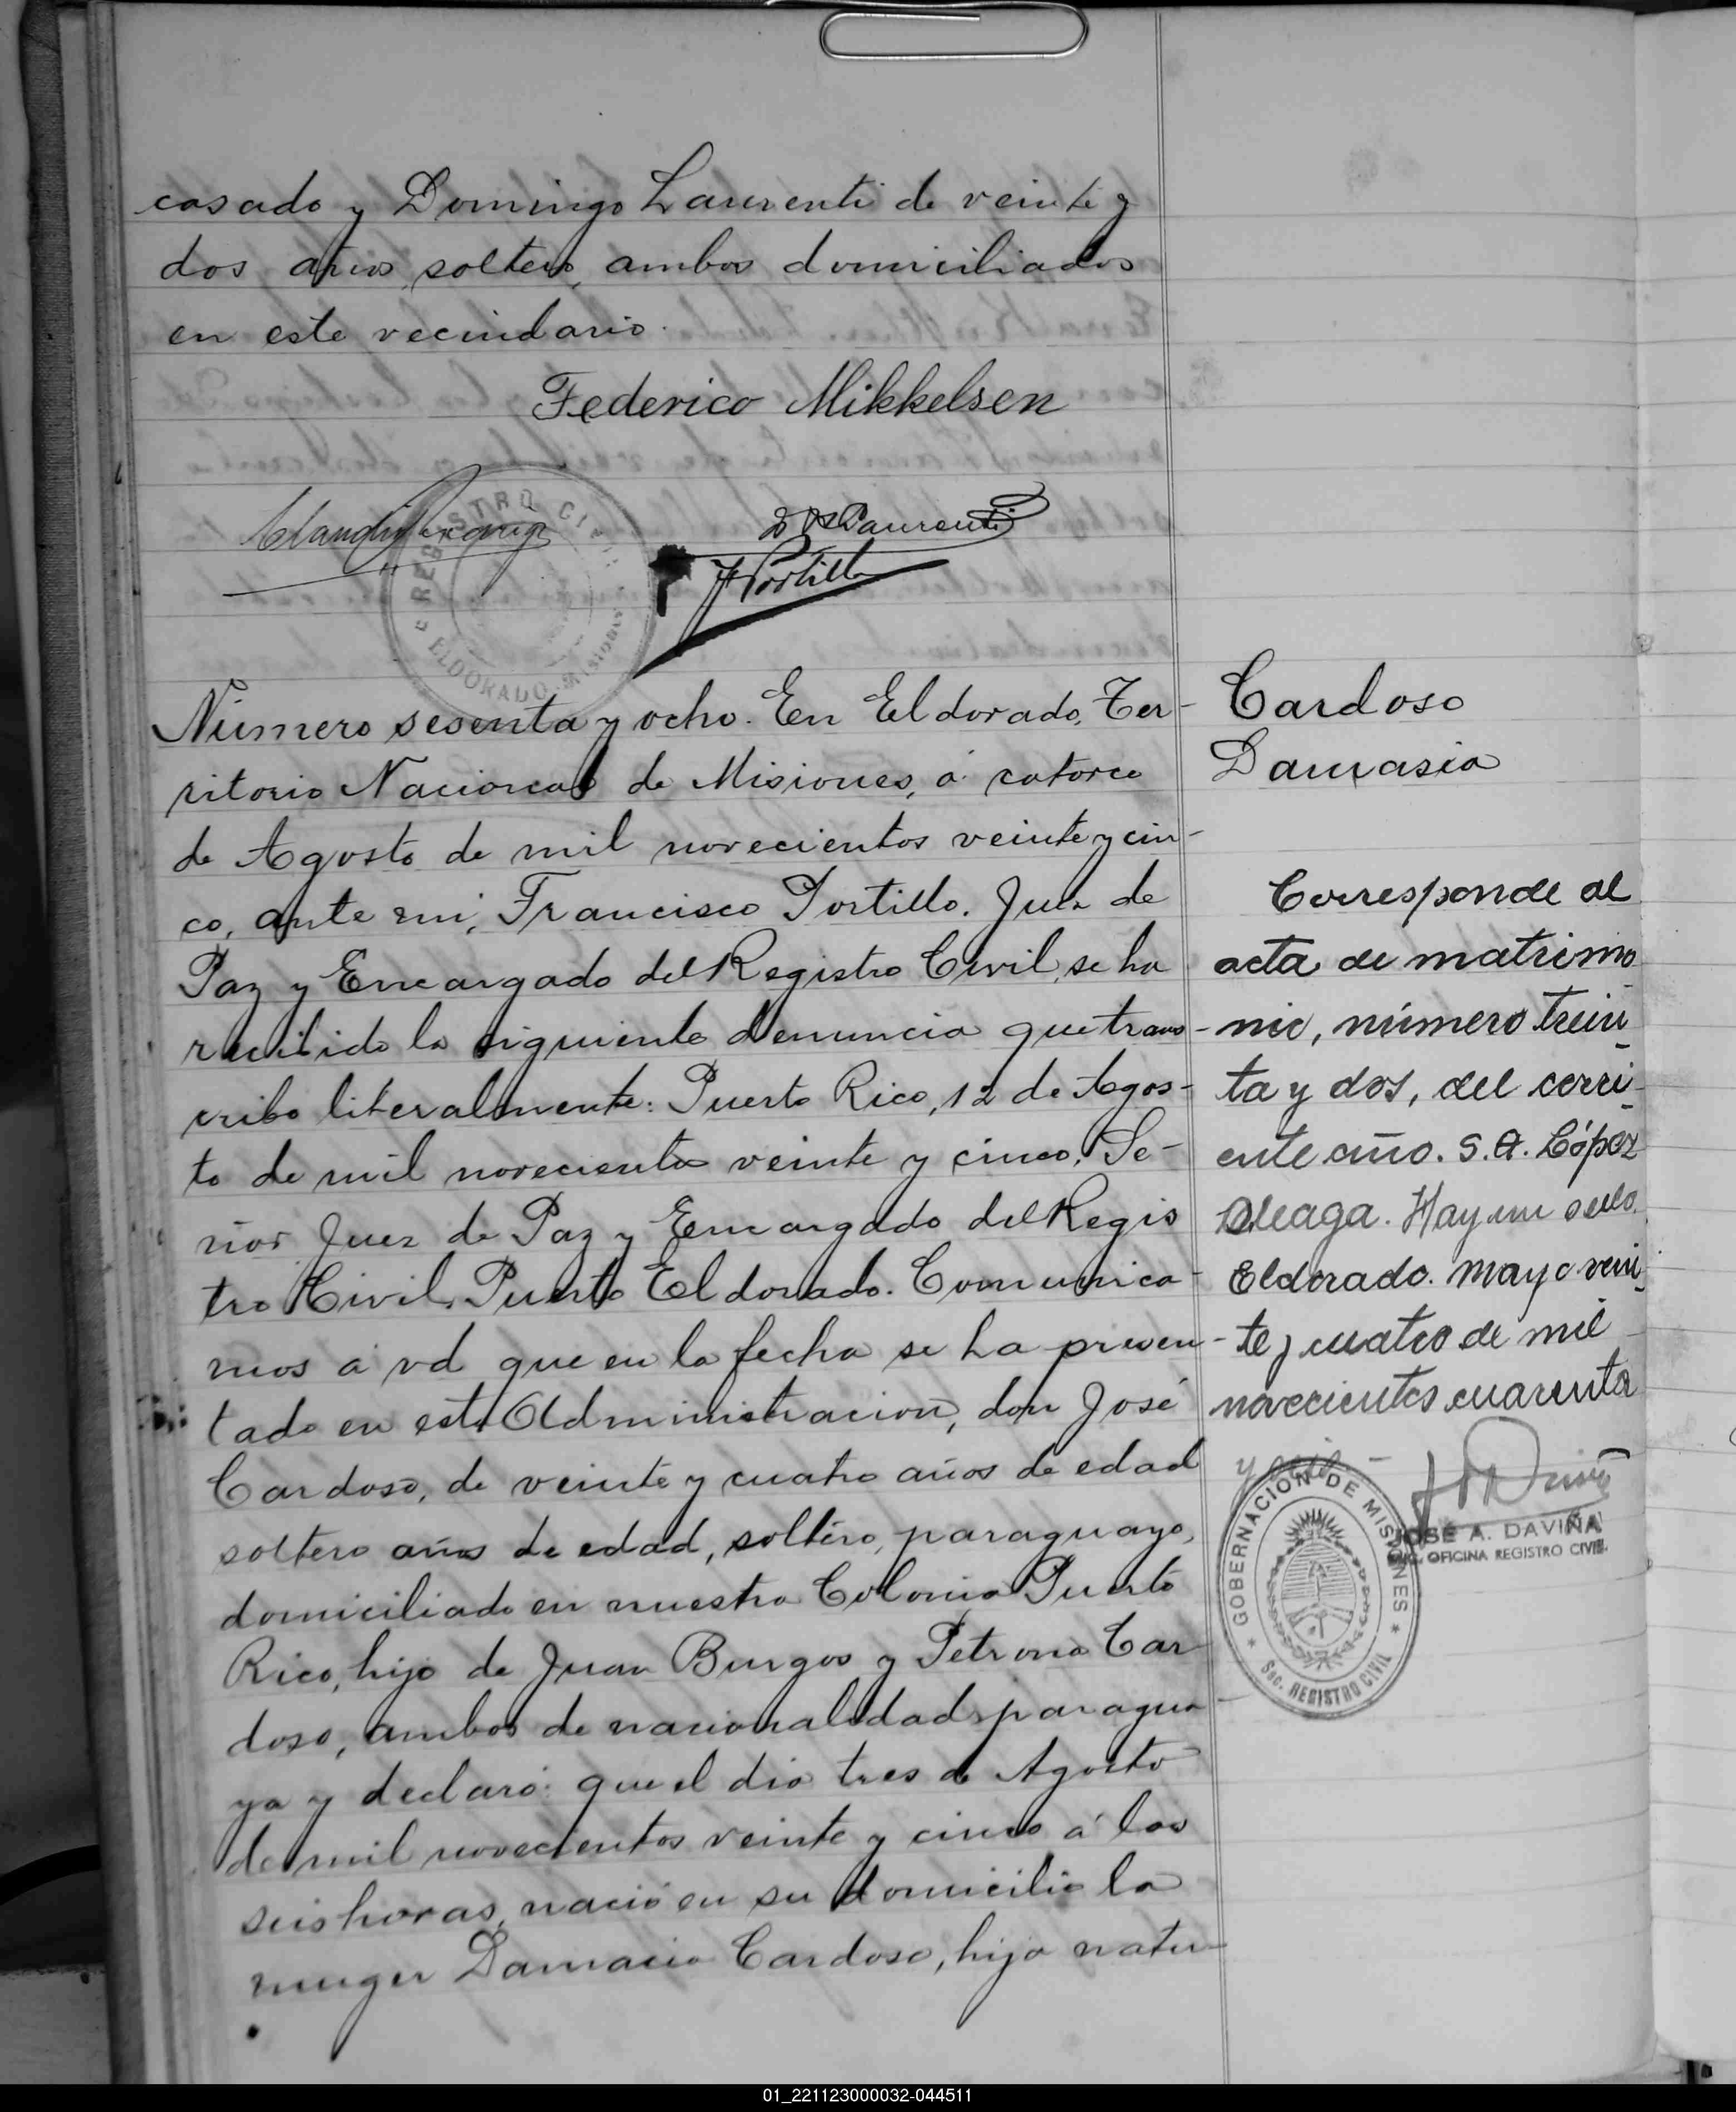 casado y Domingo Laurenti de veinte y
dos años, soltero, ambos domiciliados
en este vecindario.
Federico Mikkelsen
Laurenti
F Portillo
REGISTRO CIVIL
ELDORADO - Misiones
Número sesenta y ocho. En Eldorado, Ter-
ritorio Nacional de Misiones, á catorce
de Agosto de mil novecientos veinte y cin-
co, ante mi, Francisco Portillo. Juez de
Paz y Encargado del Registro Civil, se ha
recibido la siguiente denuncia que trans-
cribo literalmente: Puerto Rico, 12 de Agos-
to de mil novecientos veinte y cinco. Se-
ñor Juez de Paz y Encargado del Regis
tro Civil, Puerto Eldorado. Comunica-
mos á vd que en la fecha se ha presen-
tado en esta Administracion, don José
Cardoso, de veinte y cuatro años de edad
soltero años de edad, soltero, paraguayo,
domiciliado en nuestra Colonia Puerto
Rico, hijo de Juan Burgos y Petrona Car-
doso, ambos de nacionalidad paragua-
ya y declaró: que el dia tres de Agosto
de mil novecientos veinte y cinco á las
seis horas, nació en su domicilio la
muger Damacia Cardoso, hija natu-
Cardoso
Damasia
Corresponde al
acta de matrimo
nio, número trein
ta y dos, del corri-
ente año. S. A. López
Aleaga. Hay un sello.
Eldorado. Mayo vein-
te y cuatro de mil
novecientos cuarenta
y seis -
GOBERNACION DE MISIONES
Sec. REGISTRO CIVIL
JOSE A. DAVIÑA
ENC. OFICINA REGISTRO CIVIL
01_221123000032-044511